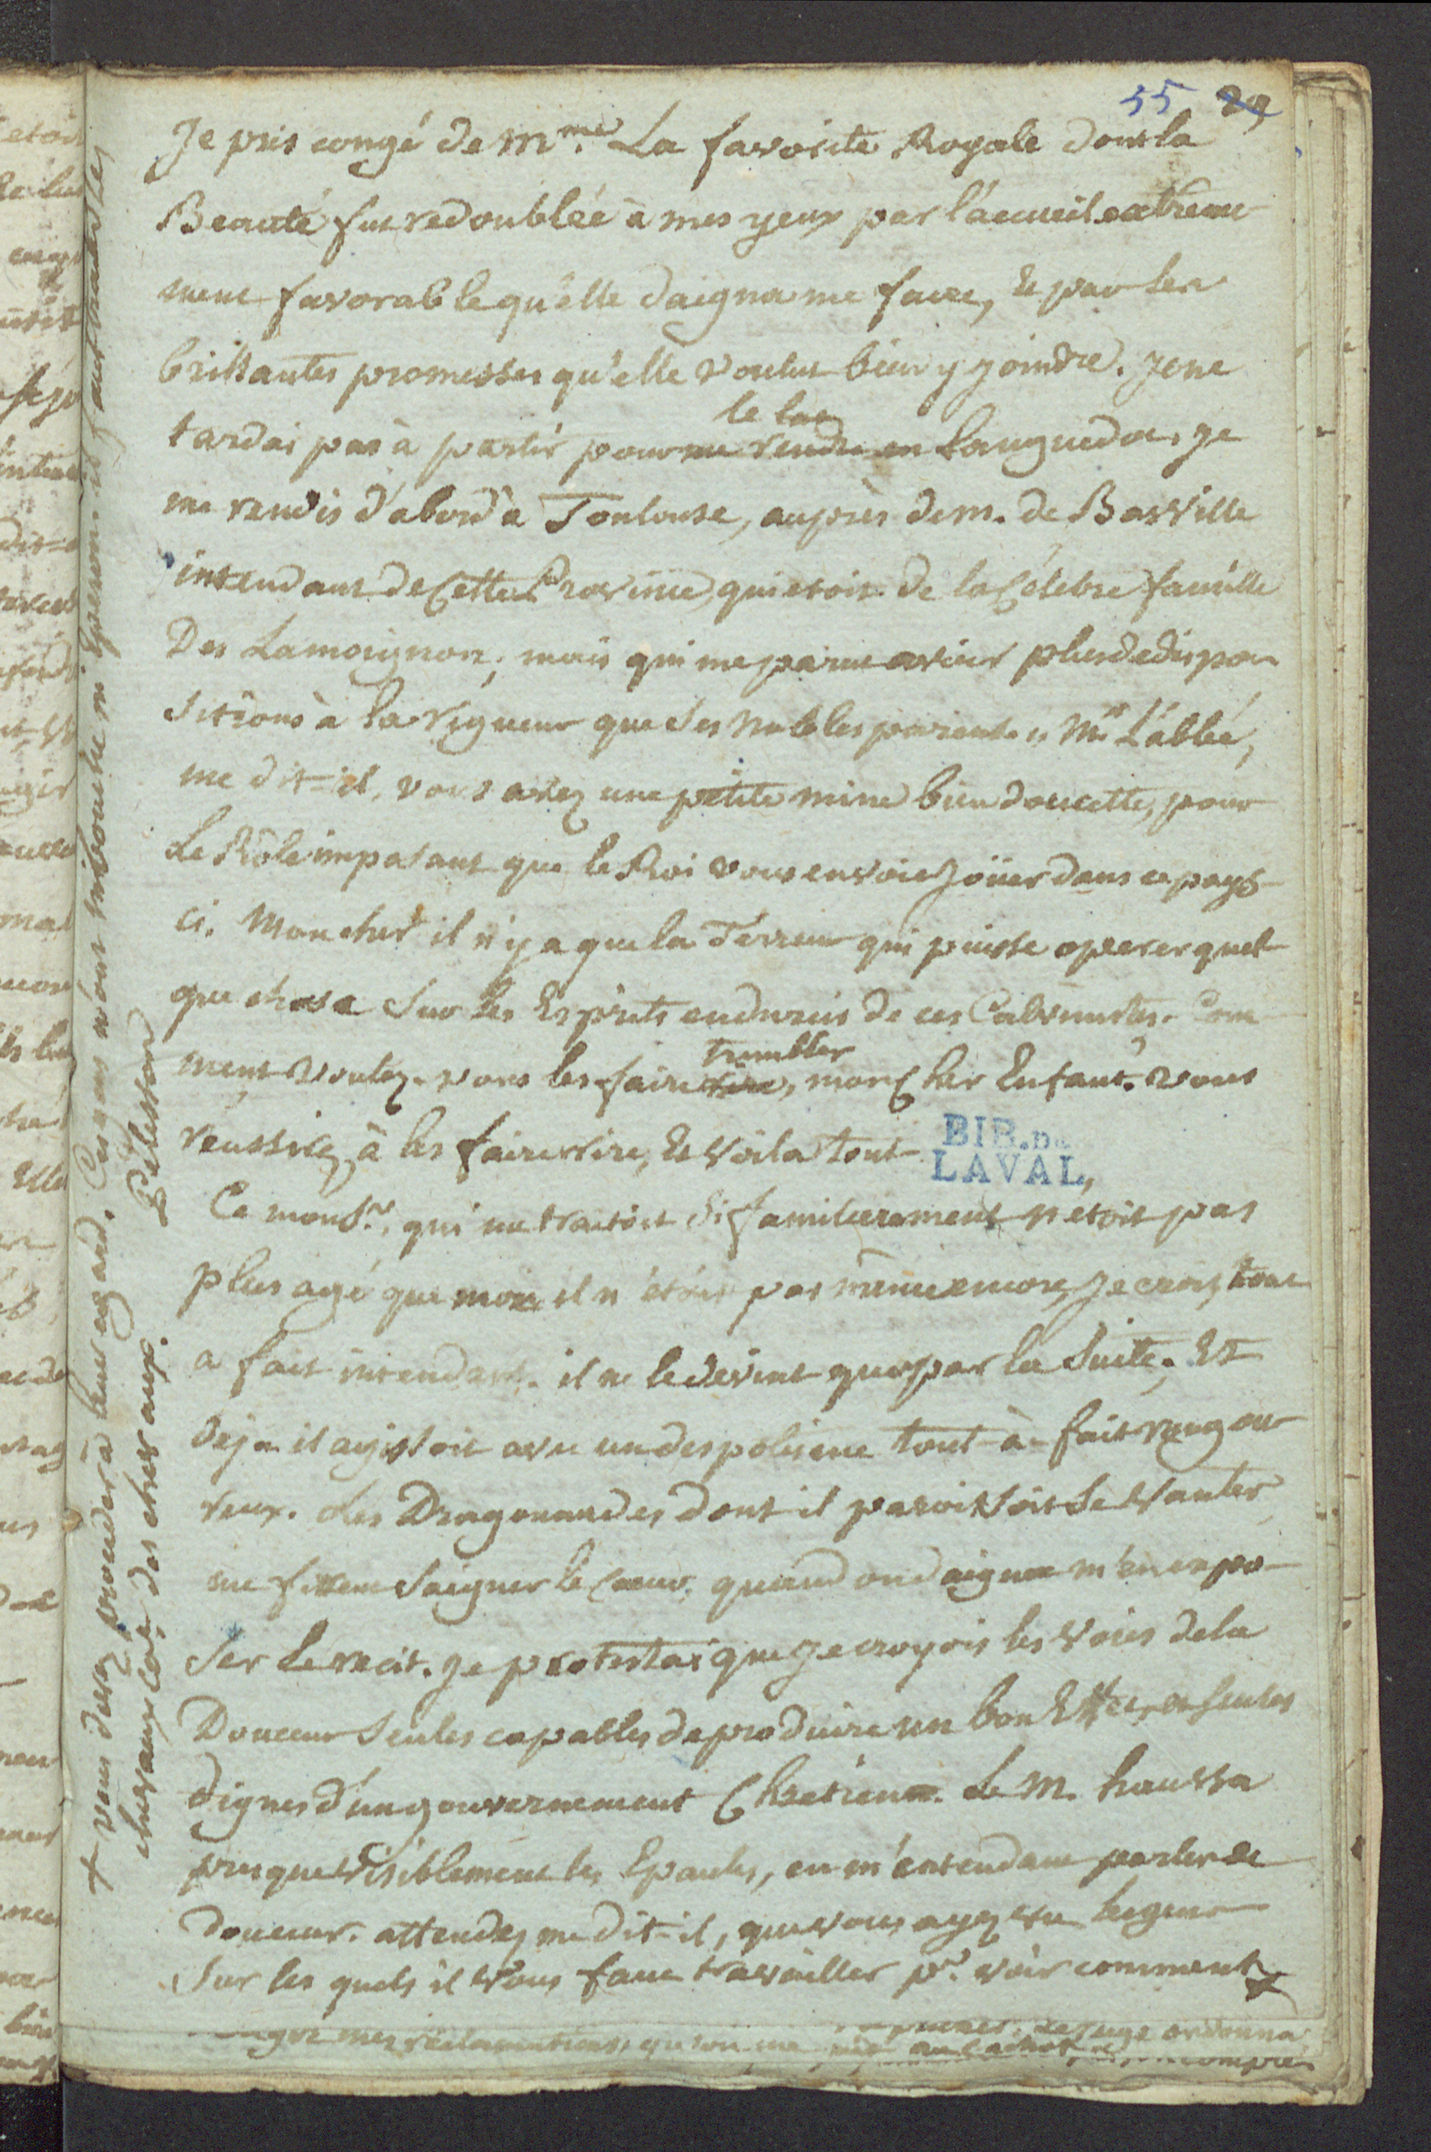 55 29
Je pris congé de Mme. La favorite Royale dont la
Beauté fut redoublée à mes yeux par l'accueil extreme
ment favorable qu'elle daigna me faire, Et par les
brillantes promesses qu'elle voulut bien y joindre. Je ne
le bas
tardai pas à partir pour me rendre en Languedoc, je
me rendis d'abord à Toulouse, auprès de m. de Basville
intendant de Cette Province, qui etoit de la Célebre famille
Des Lamoignon; mais qui me parut avoir plus de dispo
sitions à la rigueur que ses nobles parents. " Mr. L'abbé,
me dit-il, vous avez une petite mine bien doucette, pour
Le Rôle imposant que le Roi vous envoie Joüer dans ce pays-
ci. Mon cher il n'y a que la Terreur qui puisse operer quel
que chose Sur les Esprits endurcis de ces Calvinistes. Com
trembler
ment voulez-vous les faire rire, mon Cher Enfant? vous
réussirez à les faire rire, Et voila tout
BIB. DE
LAVAL
Ce monsr. qui me traitoit Si familierement n'etoit pas
plus agé que moi il n'étoit pas même encore, Je crois, tout
a fait intendant. il ne le devint que par la Suite. Et
deja il agissoit avec un despotisme tout-à-fait rigou
reux. Les Dragonnades dont il paroissoit Se Vanter
me firent Saigner le Coeur, quand on daigna m'en expo
ser le recit. Je protestai que Je croyois les Voies de la
Douceur Seules capables de produire un bon Effet, et Seules
dignes d'un gouvernement Chretien. Le M. haussa
presque visiblement les Epaules, en m'entendant parler de
douceur. attendez me dit-il, que vous ayez vu les gens
Sur les quels il vous faut travailler pr. voir comment +
+ vous devez proceder à leur egard. Ces gens n'ont ni bouche ni Eperons il faut traiter les
chevaux Com des chevaux. Pelisson
malgré mes réclamations, qu'on me mit au cachot
Le juge ordonna